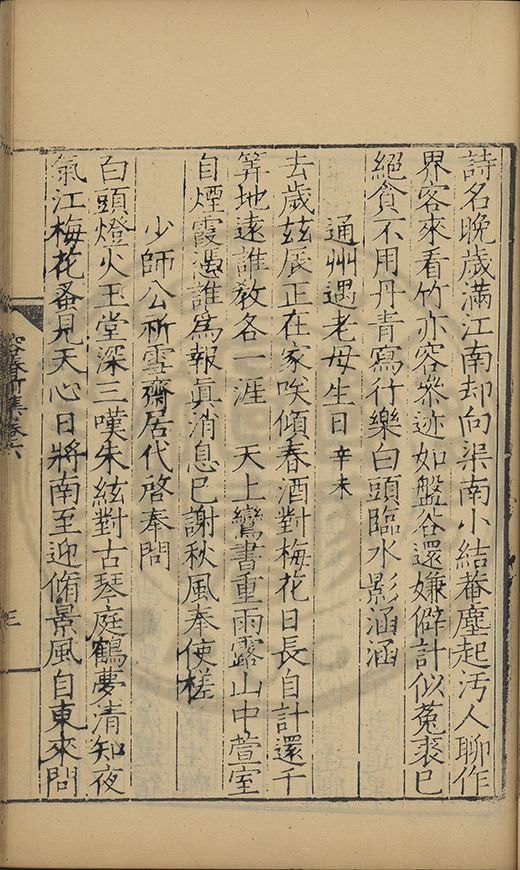 詩名晚歲滿江南却向渠南小結菴塵起汚人聊作
界客來看竹亦容叅迹如盤谷還嫌僻計似菟裘已
絕貪不用丹青寫行樂白頭臨水影涵涵
通州遇老母生日辛未
去歲玆辰正在家唉傾春酒對梅花日長自計還千
筭地遠誰敎各一涯　天上鸞書重雨露山中萱室
自煙霞憑誰爲報眞消息已謝秋風奉使槎
少師公祈雪齋居代啓奉問
白頭燈火玉堂深三嘆朱絃對古琴庭鶴夢清知夜
氣江梅花蚤見天心日將南至迎脩景風自東來問
三